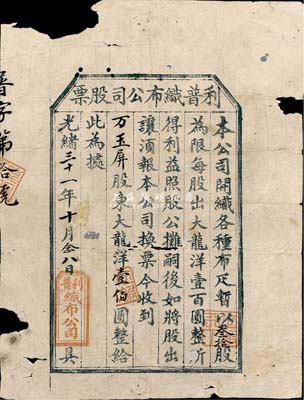 利普織布公司股票
本公司開織各種布疋暫以叁拾股
為限每股出大龍洋壹百圓整所
得利益照股公攤嗣後如將股出
讓須報本公司換票今收到
万玉屏股東大龍洋壹佰圓整給
此為據
光緒三十一年十月廿八日 具
利普織布公司
普字第拾號